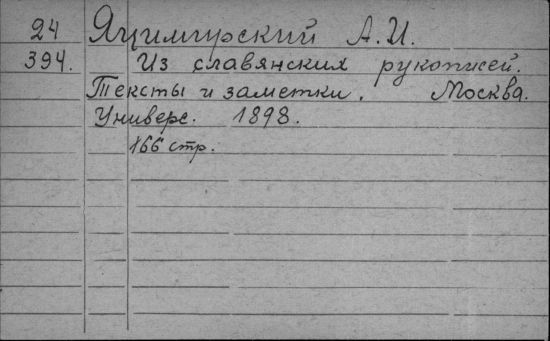 24 Яцимирский А.И.
394. Из славянских рукописей.
Тексты и заметки. Москва.
Универс. 1898.
166 стр.